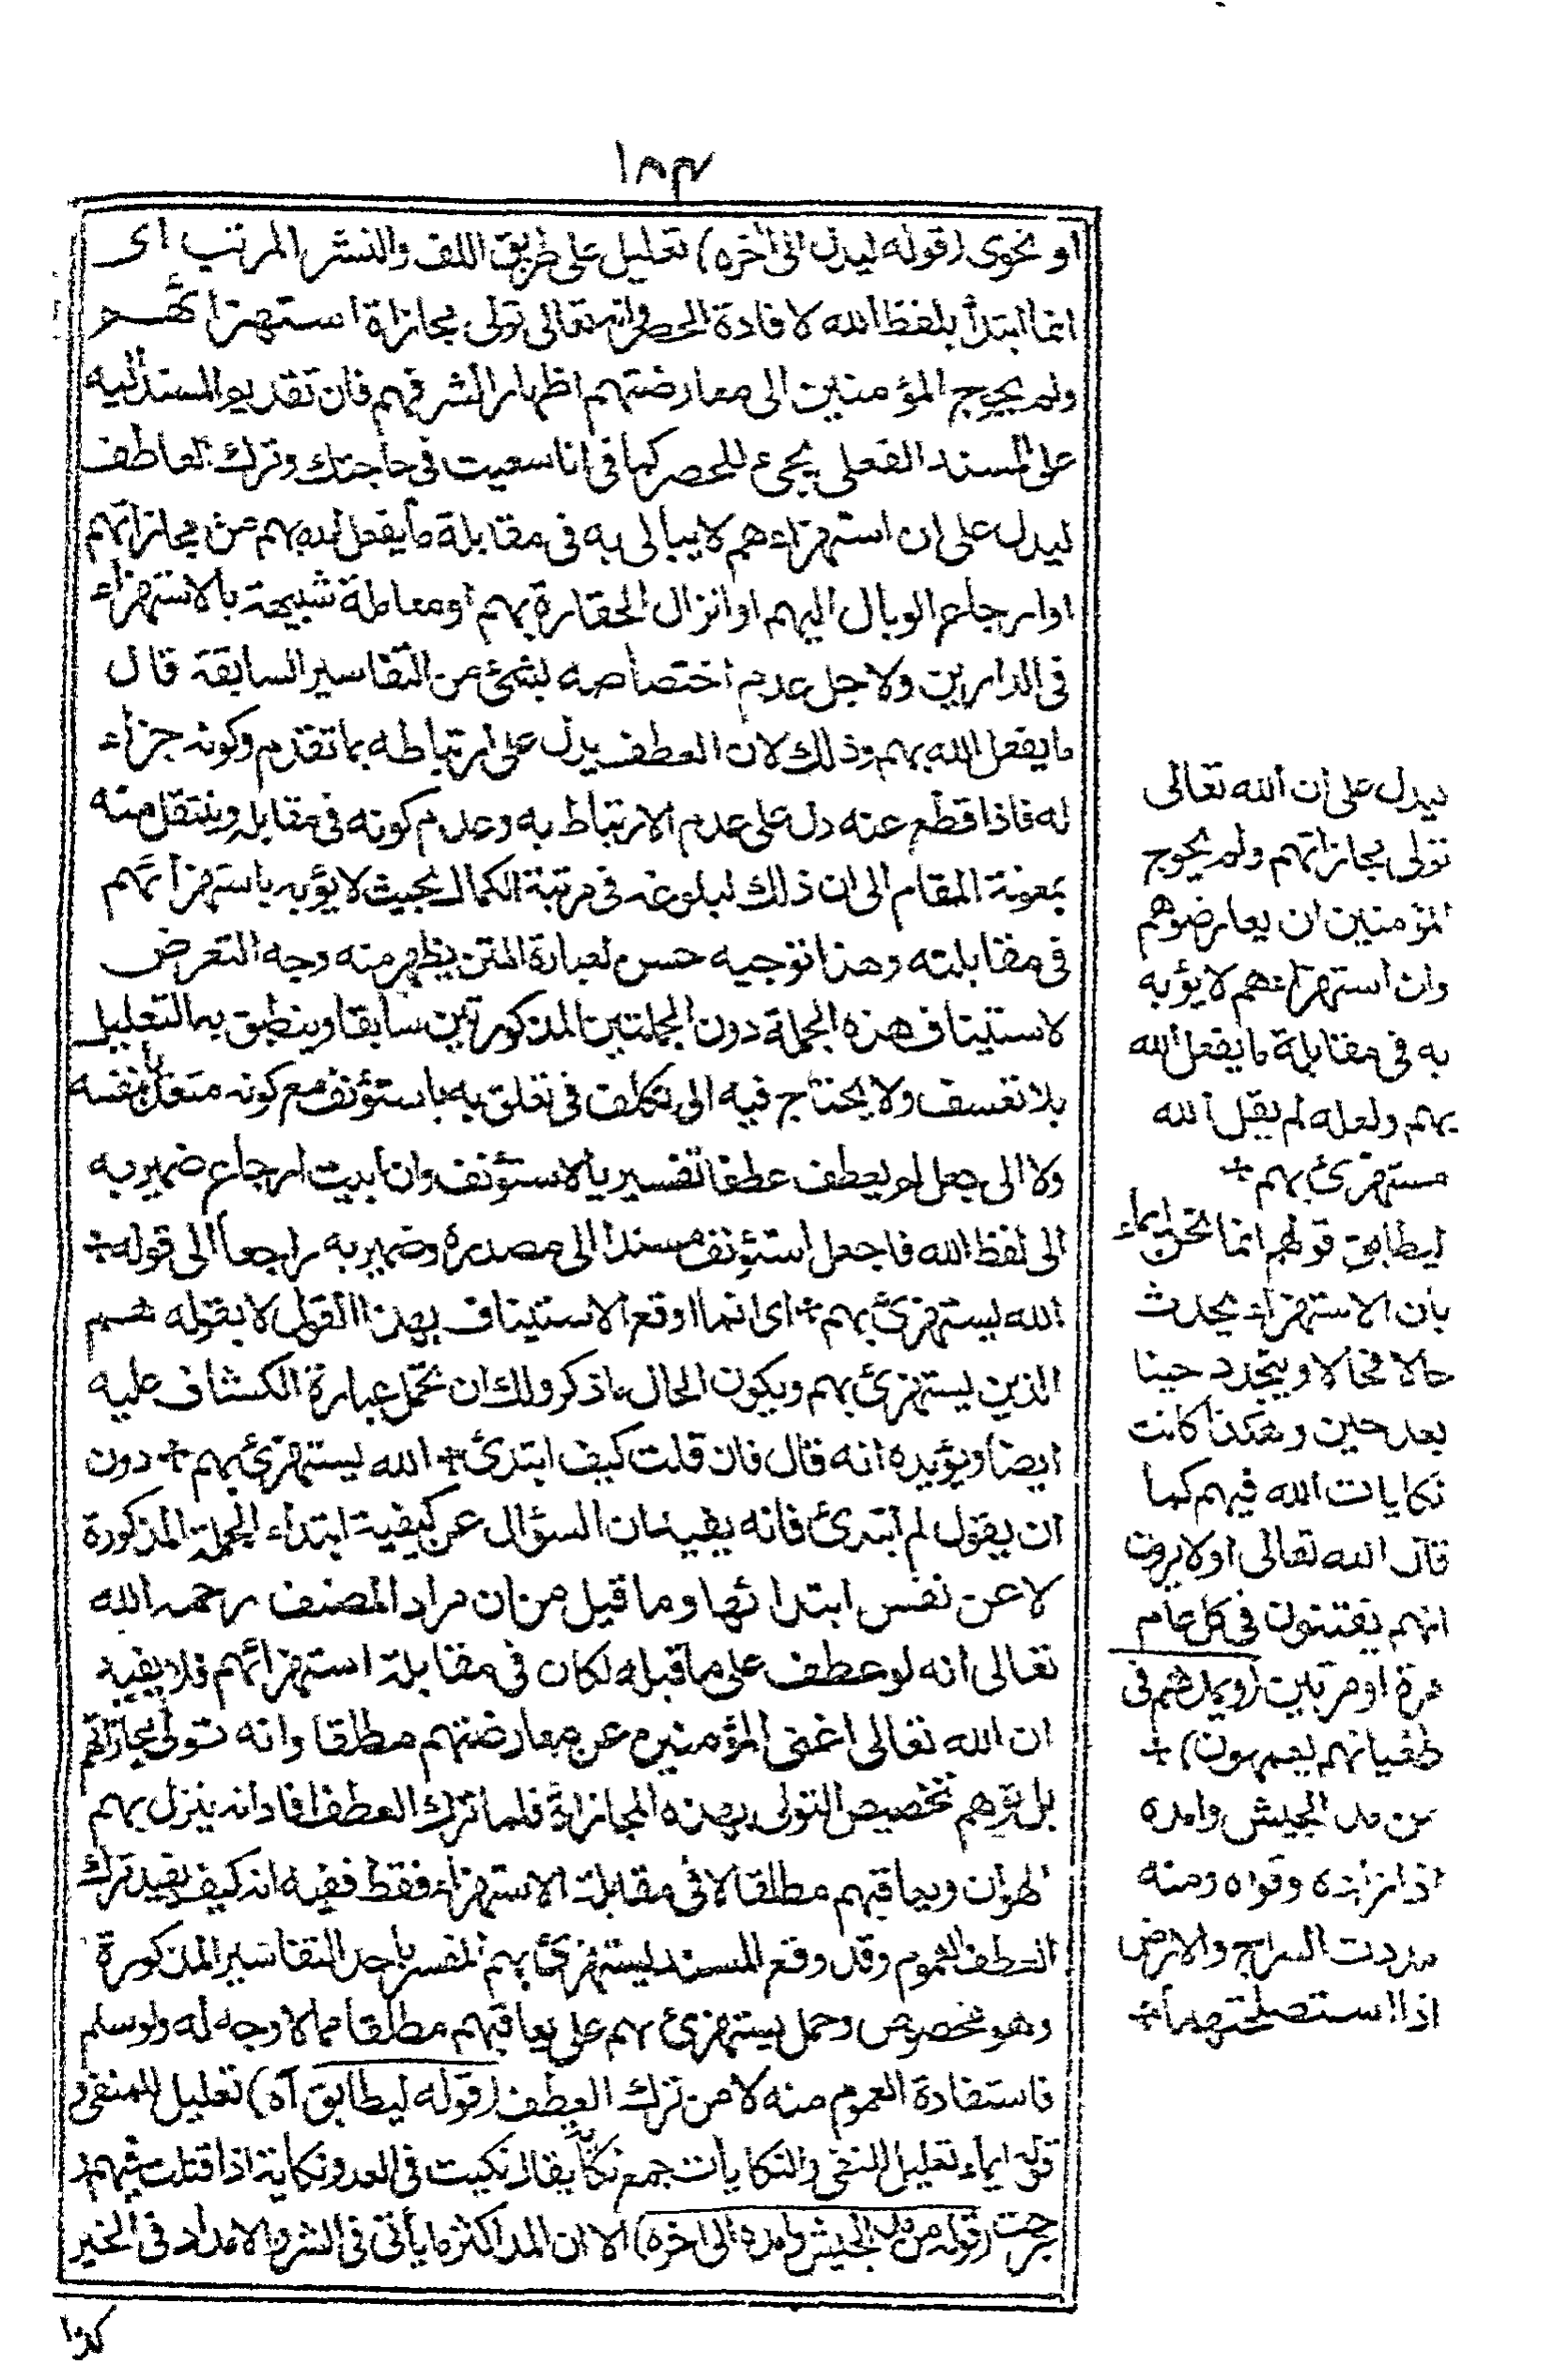 ١٨٣
او نحوى (قوله ليدل الى اخره) تعليل على طريق اللف والنشر المرتب اى
انما ابتدأ بلفظ الله لافادة الحصر وانه تعالى تولى مجازاة استهزائهم
ولم يحوج المؤمنين الى معارضتهم اظهارا لشرفهم فان تقديم المسند اليه
على المسند الفعلى يجىء للحصر كما فى انا سعيت فى حاجتك وترك العاطف
ليدل على ان استهزاءهم لا يبالى به فى مقابلة ما يفعل الله بهم من مجازاتهم
او ارجاع الوبال اليهم او انزال الحقارة بهم او معاملة شبيهة بالاستهزاء
فى الدارين ولاجل عدم اختصاصه بشئ من التفاسير السابقة قال
ما يفعل الله بهم وذلك لان العطف يدل على ارتباطه بما تقدم وكونه جزاء
له فاذا قطع عنه دل على عدم الارتباط به وعدم كونه فى مقابله وينتقل منه
بمعونة المقام الى ان ذلك لبلوغه فى مرتبة الكمال بحيث لا يؤبه باستهزائهم
فى مقابلته وهذا توجيه حسن لعبارة المتن يظهر منه وجه التعرض
لاستيناف هذه الجملة دون الجملتين المذكورتين سابقا وينطبق به التعليل
بلا تعسف ولا يحتاج فيه الى تكلف فى تعلق به باستؤنف مع كونه متعديا بنفسه
ولا الى جعل لم يعطف عطفا تفسيريا لاستؤنف وان ابيت ارجاع ضمير به
الى لفظ الله فاجعل استؤنف مسندا الى مصدره وضمير به راجعا الى قوله +
الله يستهزئ بهم + اى انما اوقع الاستيناف بهذا القول لا بقوله هم
الذين يستهزئ بهم ويكون الحال ما ذكر ولك ان تحمل عبارة الكشاف عليه
ايضا ويؤيده انه قال فان قلت كيف ابتدئ + الله يستهزئ بهم + دون
ان يقول لم ابتدئ فانه يفيد ان السؤال عن كيفية ابتداء الجملة المذكورة
لا عن نفس ابتدائها وما قيل من ان مراد المصنف رحمه الله
تعالى انه لو عطف على ما قبله لكان فى مقابلة استهزائهم فلا يفيد
ان الله تعالى اغنى المؤمنين عن معارضتهم مطلقا وانه تولى مجازاتهم
بل يوهم تخصيص التولى بهذه المجازاة فلما ترك العطف افاد انه ينزل بهم
الهوان ويعاقبهم مطلقا لا فى مقابلة الاستهزاء فقط ففيه انه كيف يفيد ترك
العطف العموم وقد وقع المسند يستهزئ بهم المفسر باحد التفاسير المذكورة
وهو مخصوص وحمل يستهزئ بهم على يعاقبهم مطلقا مما لا وجه له ولو سلم
فاستفادة العموم منه لا من ترك العطف (قوله ليطابق آه) تعليل للمنفى و
قوله ايماء تعليل للنفى والنكايات جمع نكاية يقال نكيت فى العدو نكاية اذا قتلت فيهم و
جرحت (قوله من مد الجيش وامده الى اخره) الا ان المد اكثر ما يأتى فى الشر والامداد فى الخير
كذا
ليدل على ان الله تعالى
تولى مجازاتهم ولم يحوج
المؤمنين ان يعارضوهم
وان استهزاءهم لا يؤبه
به فى مقابلة ما يفعل الله
بهم ولعله لم يقل الله
مستهزئ بهم +
ليطابق قولهم انما نحن ايماء
بان الاستهزاء يحدث
حالا فحالا ويتجدد حينا
بعد حين وهكذا كانت
نكايات الله فيهم كما
قال الله تعالى اولا يرون
انهم يفتنون فى كل عام
مرة او مرتين (ويمدهم فى
طغيانهم يعمهون) +
من مد الجيش وامده
اذا زاده وقواه ومنه
مددت السراج والارض
اذا استصلحتهما +